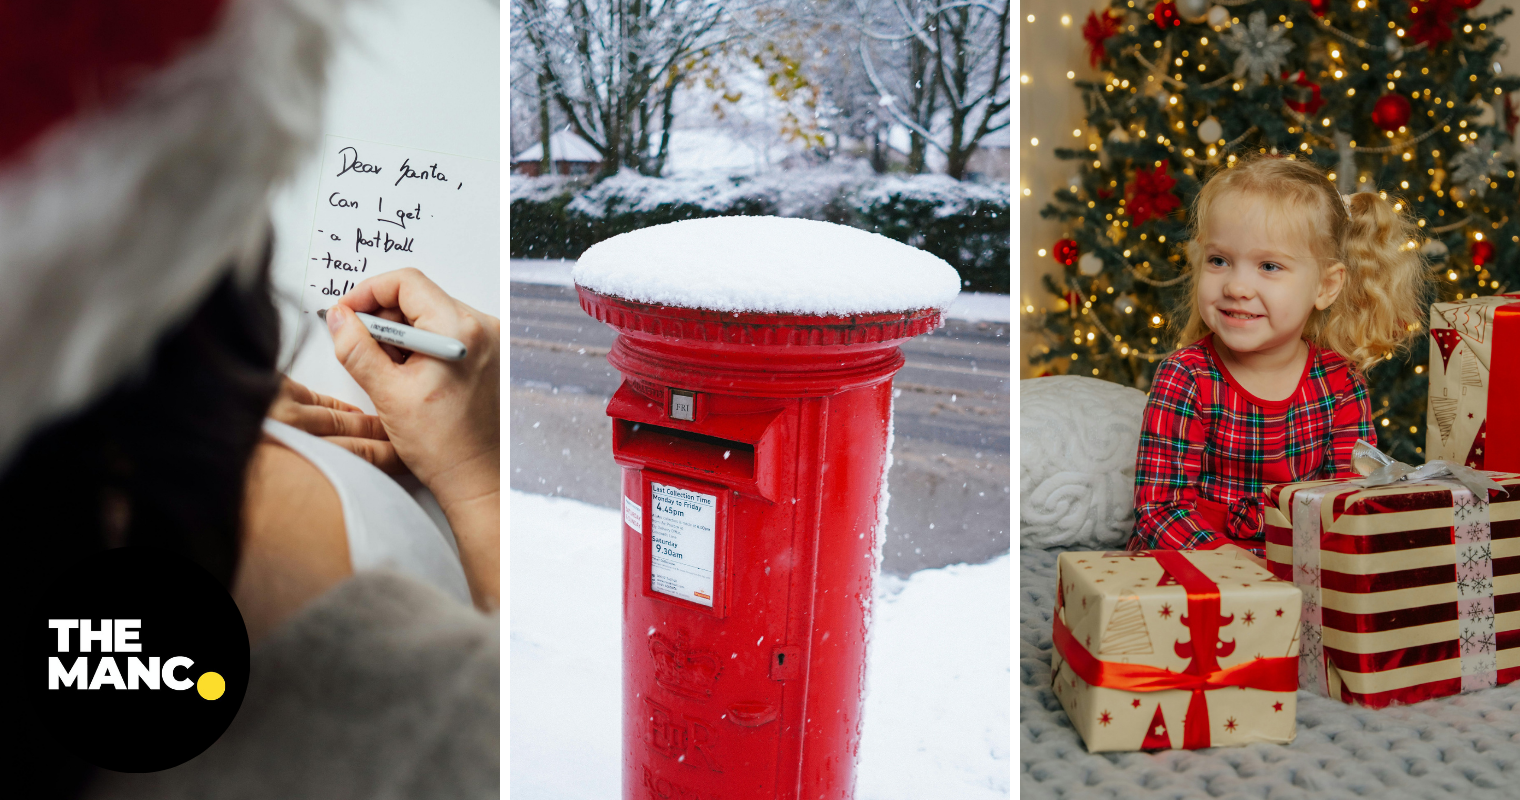 Dear Santa,
Can I get
- a football
- trail
- doll
THE
MANC.
FRI
Last Collection Time
Monday to Friday
4.45pm
Saturday
9.30am